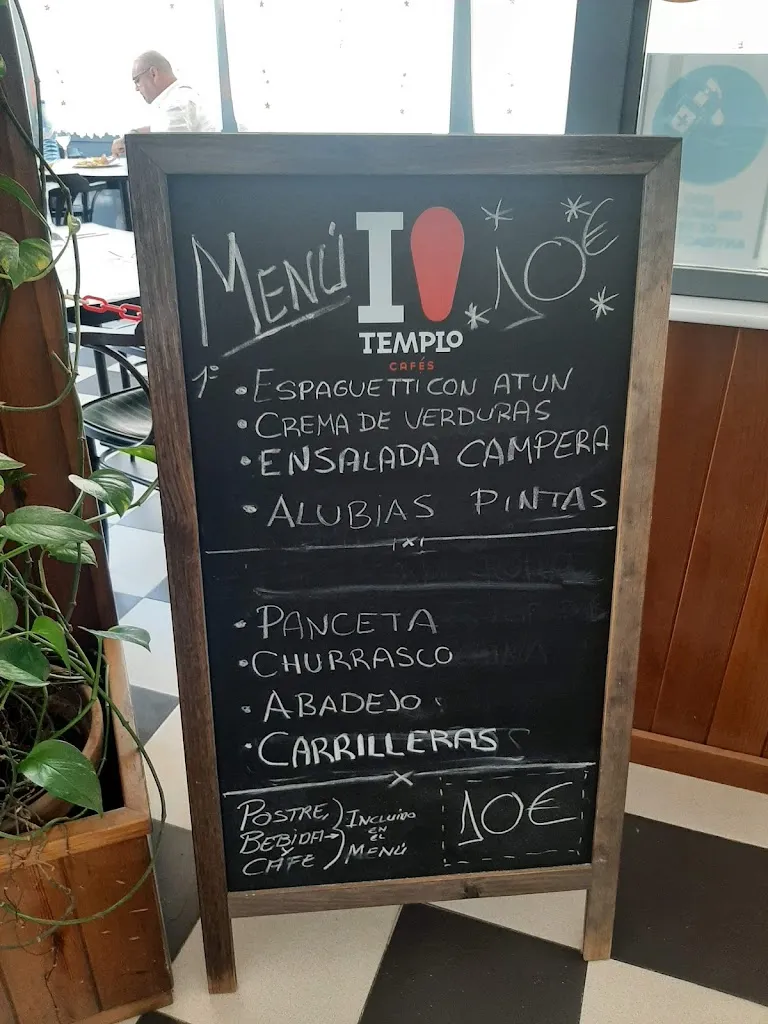 MENÚ
I
10€
TEMPLO
CAFÉS
1º
• ESPAGUETTI CON ATUN
• CREMA DE VERDURAS
• ENSALADA CAMPERA
• ALUBIAS PINTAS
• PANCETA
• CHURRASCO
• ABADEJO
• CARRILLERAS
POSTRE,
BEBIDA
Y
CAFE
INCLUIDO
EN
EL
MENÚ
10€